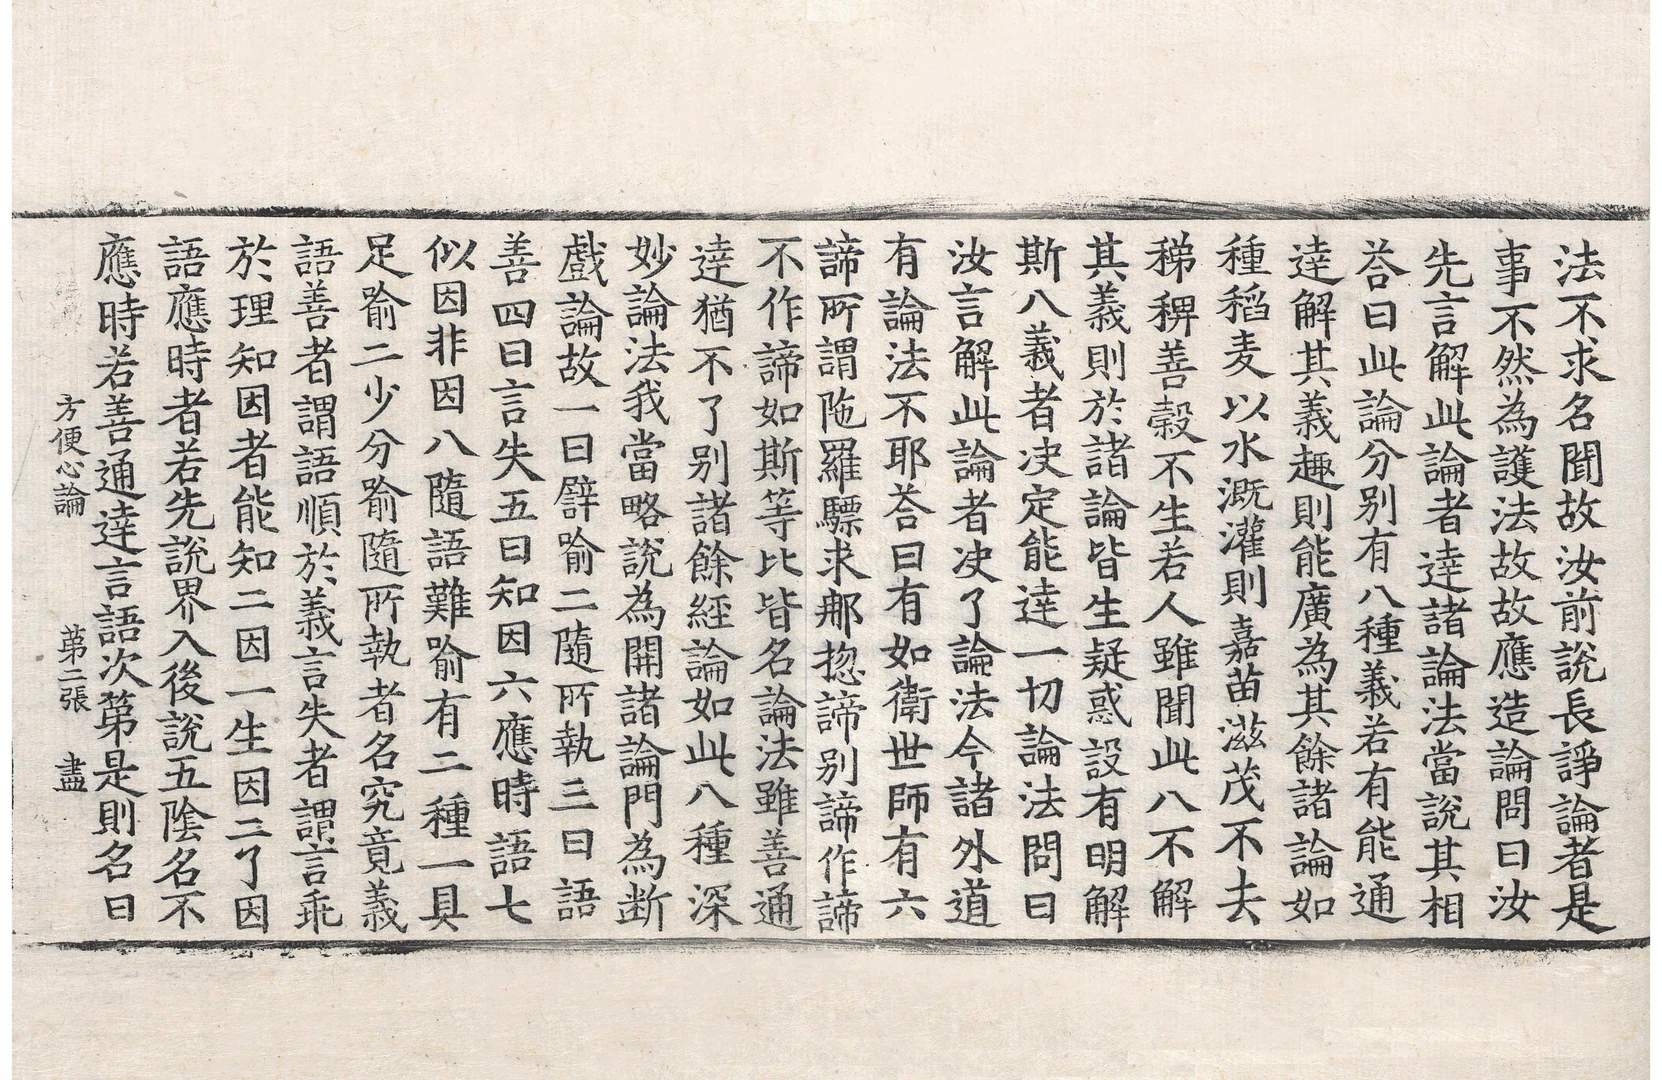 法不求名聞故汝前說長諍論者是
事不然為護法故故應造論問曰汝
先言解此論者達諸論法當說其相
荅曰此論分別有八種義若有能通
達解其義趣則能廣為其餘諸論如
種稻麦以水溉灌則嘉苗滋茂不去
稊稗善穀不生若人雖聞此八不解
其義則於諸論皆生疑惑設有明解
斯八義者决定能達一切論法問曰
汝言解此論者决了論法今諸外道
有論法不耶荅曰有如衛世師有六
諦所謂陁羅驃求那揔諦別諦作諦
不作諦如斯等比皆名論法雖善通
達猶不了別諸餘經論如此八種深
妙論法我當略說為開諸論門為断
戲論故一曰譬喻二隨所執三曰語
善四曰言失五曰知因六應時語七
似因非因八隨語難喻有二種一具
足喻二少分喻隨所執者名究竟義
語善者謂語順於義言失者謂言乖
於理知因者能知二因一生因二了因
語應時者若先說界入後說五陰名不
應時若善通達言語次第是則名曰
方便心論　第二張　盡